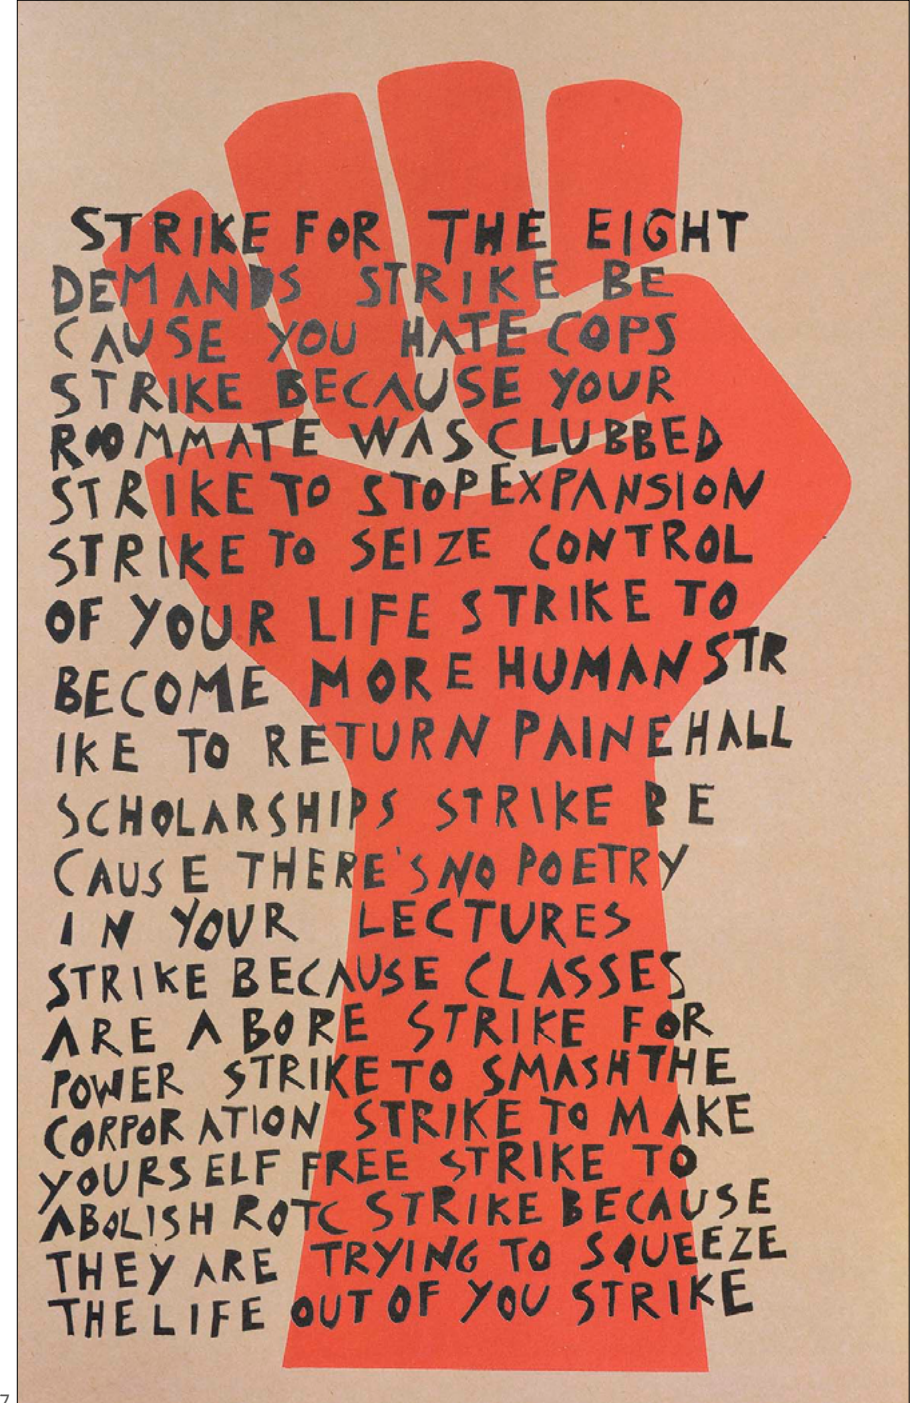 STRIKE FOR THE EIGHT
DEMANDS STRIKE BE
CAUSE YOU HATE COPS
STRIKE BECAUSE YOUR
ROOMMATE WAS CLUBBED
STRIKE TO STOP EXPANSION
STRIKE TO SEIZE CONTROL
OF YOUR LIFE STRIKE TO
BECOME MORE HUMAN STR
IKE TO RETURN PAINE HALL
SCHOLARSHIPS STRIKE BE
CAUSE THERE'S NO POETRY
IN YOUR LECTURES
STRIKE BECAUSE CLASSES
ARE A BORE STRIKE FOR
POWER STRIKE TO SMASH THE
CORPORATION STRIKE TO MAKE
YOURSELF FREE STRIKE TO
ABOLISH ROTC STRIKE BECAUSE
THEY ARE TRYING TO SQUEEZE
THE LIFE OUT OF YOU STRIKE
7